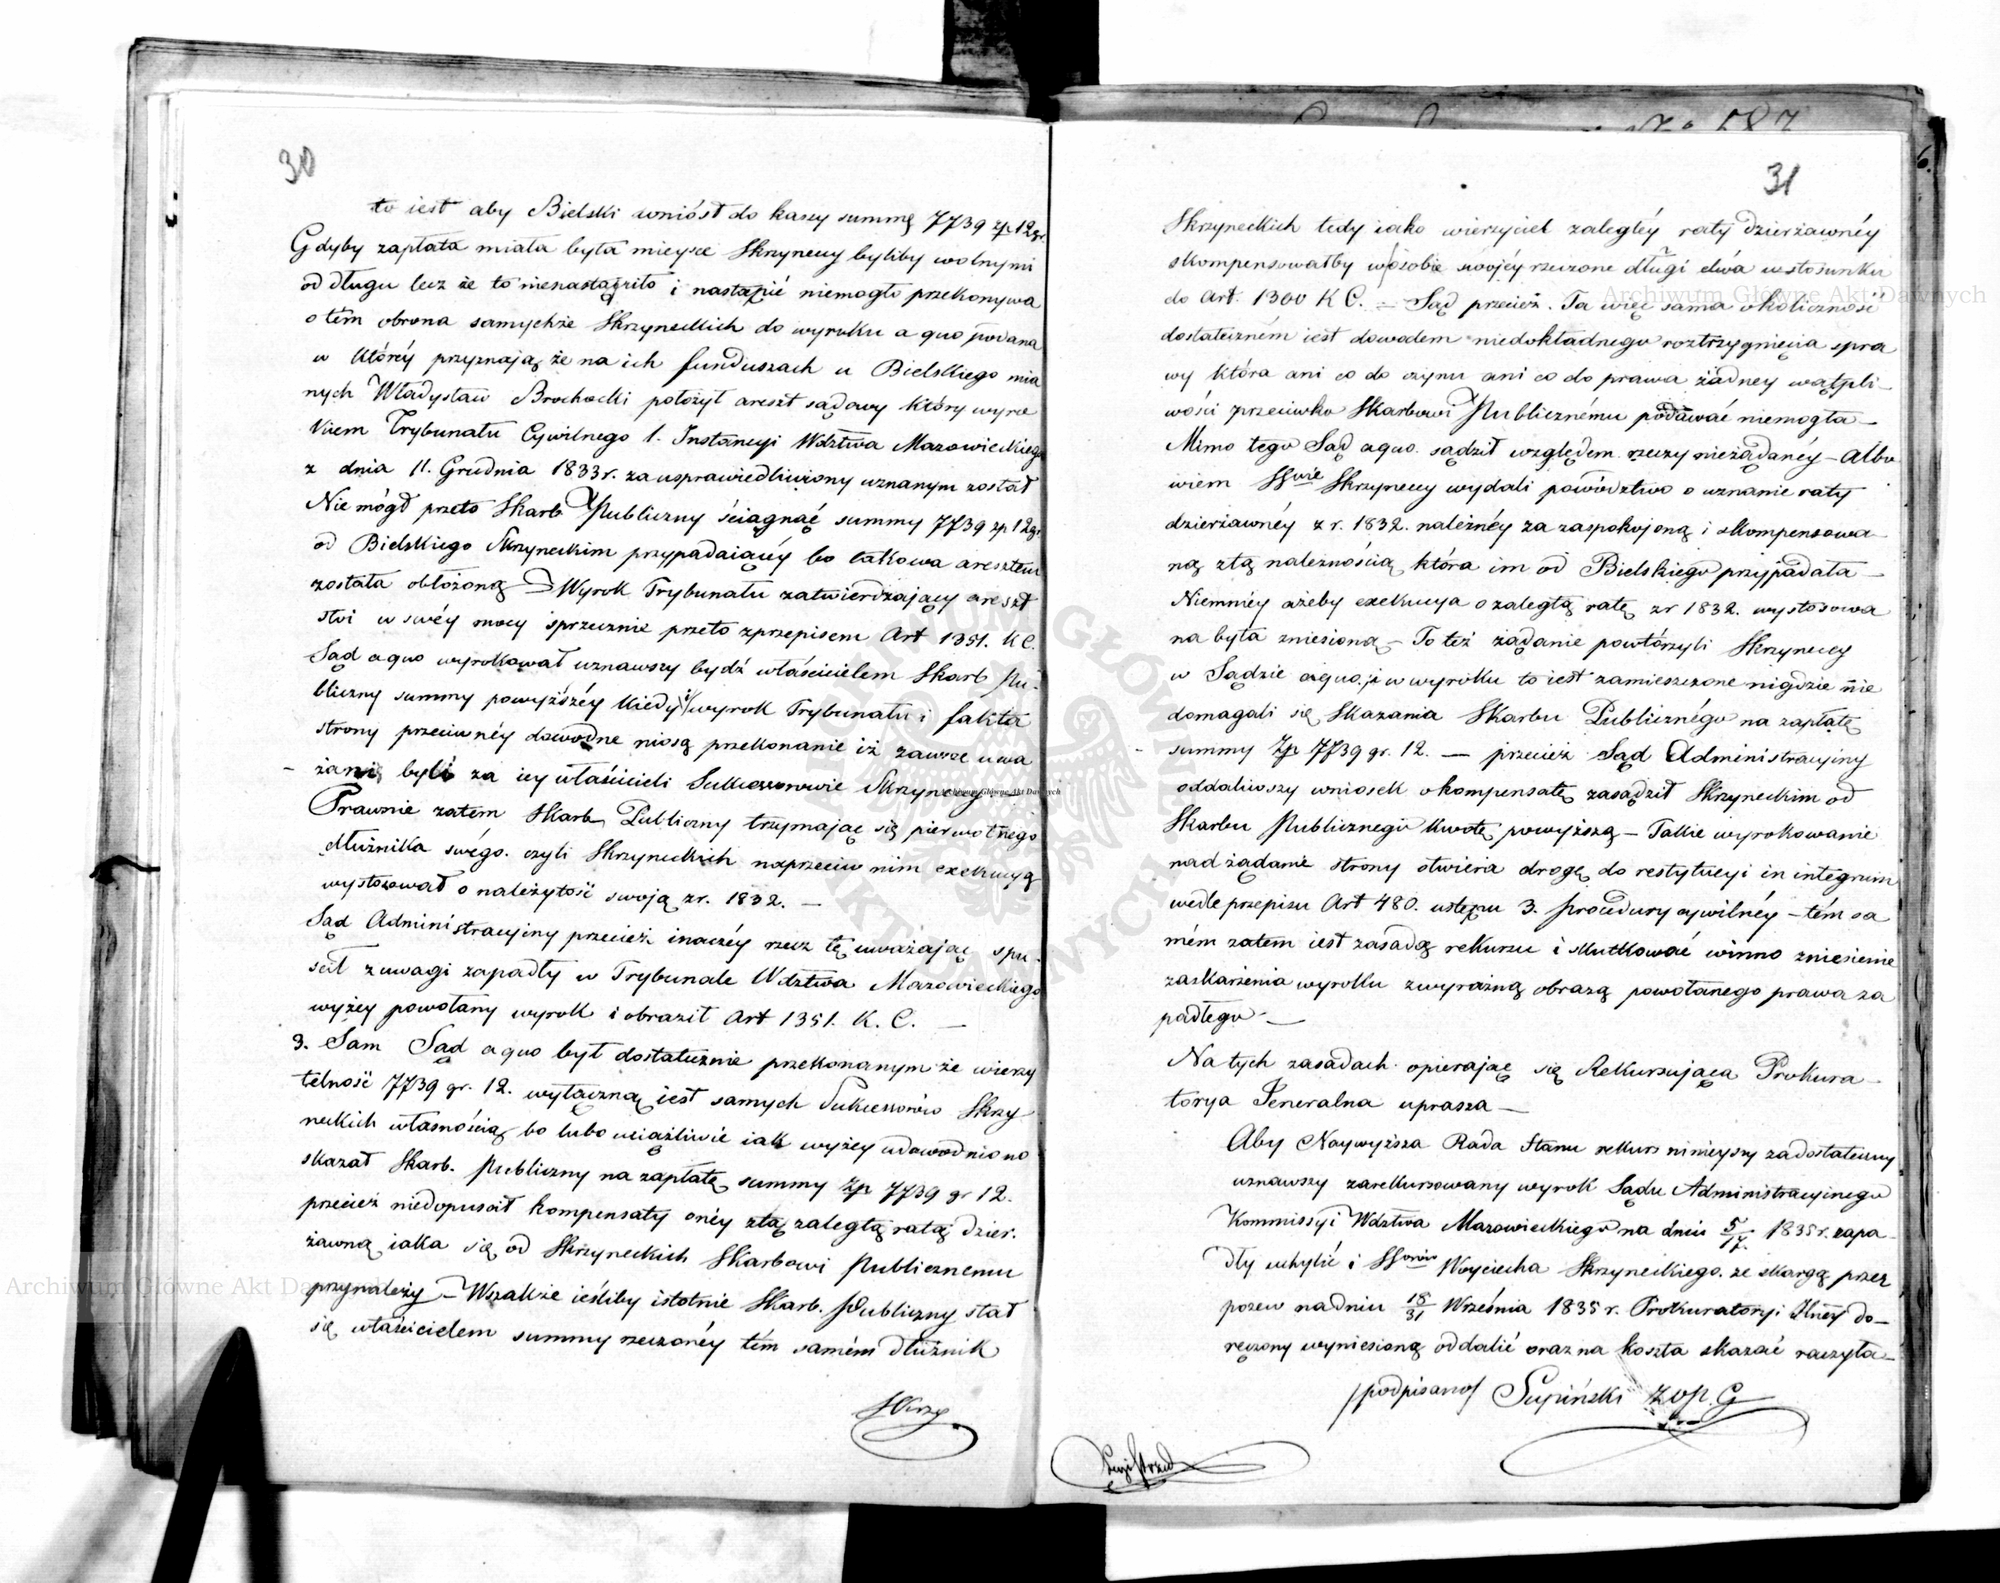 30
to iest aby Bielski wniósł do kassy summę 7739 zp 12 gr.
Gdyby zapłata miała była mieysce Skrzyneccy byliby wolnymi
od długu lecz że to nienastąpiło i nastąpić niemogło przekonywa
o tem obrona samychże Skrzyneckich do wyroku a quo podana
w któréy przyznają że na ich funduszach u Bielskiego mia
nych Władysław Brochocki położył areszt sądowy który wyro
kiem Trybunału Cywilnego 1. Instancyi Wdztwa Mazowieckiego
z dnia 11. Grudnia 1833 r. za usprawiedliwiony uznanym został
Nie mógł przeto Skarb Publiczny ściągnąć summy 7739 zp 12 gr.
od Bielskiego Skrzyneckim przypadaiącéy bo takowa aresztem
została obłożoną – Wyrok Trybunału zatwierdzający areszt
stoi w swéy mocy sprzecznie przeto z przepisem Art 1351. K C.
Sąd a quo wyrokował uznawszy bydź właścicielem Skarb Pu-
bliczny summy powyższéy kiedy i wyrok Trybunału i fakta
strony przeciwnéy dowodne niosą przekonanie iż zawsze uwa
żani byli za iey właścicieli Sukcessorowie Skrzyneccy. –
Prawnie zatem Skarb Publiczny trzymając się pierwotnego
dłużnika swégo. czyli Skrzyneckich naprzeciw nim exekucyą
wystosował o należytość swoją z r. 1832. –
Sąd Administracyiny przecież inaczéy rzecz tę uważając spu-
ścił z uwagi zapadły w Trybunale Wdztwa Mazowieckiego
wyżey powołany wyrok i obraził Art 1351. K. C. –
3. Sam Sąd a quo był dostatecznie przekonanym że wierzy
telność 7739 gr. 12. wyłączną iest samych Sukcessorów Skrzy
neckich własnością, bo lubo uciążliwie iak wyżey udowodniono
skazał Skarb. Publiczny na zapłatę summy Zp 7739 gr 12.
przecież niedopuścił kompensaty onéy z tą zaległą ratą dzier.
żawną iaka się od Skrzyneckich Skarbowi Publicznemu
przynależy – Wszakże ieśliby istotnie Skarb. Publiczny stał
się właścicielem summy rzeczonéy tém samém dłużnik
Skrzy
31
Skrzyneckich tedy iako wierzyciel zaległéy raty dzierżawnéy
skompensowałby w osobie swojéy rzeczone długi dwa w stosunku
do Art. 1300 K C. – Sąd przecież. Ta więc sama okoliczność
dostateczném iest dowodem niedokładnego roztrzygnięcia spra
wy która ani co do czynu ani co do prawa żadney wątpli-
wości przeciwko Skarbowi Publicznému podawać niemogła –
Mimo tego Sąd a quo. sądził względem rzeczy nieżądanéy – Albo
wiem SSwie Skrzyneccy wydali powództwo o uznanie raty
dzierżawnéy z r. 1832. należnéy za zaspokojoną i skompensowa
ną z tą należnością która im od Bielskiego przypadała –
Niemniéy ażeby exekucya o zaległą ratę z r 1832. wystosowa
na była zniesioną – To też żądanie powtórzyli Skrzyneccy
w Sądzie a quo. i w wyroku to iest zamieszczone nigdzie nie
domagali się skazania Skarbu Publicznégo na zapłatę
summy Zp 7739 gr. 12. – przecież Sąd Administracyiny
oddaliwszy wniosek o kompensatę zasądził Skrzyneckim od
Skarbu Publicznego kwotę powyższą – Takie wyrokowanie
nad żądanie strony otwiera drogę do restytucyi in integrum
wedle przepisu Art 480. ustępu 3. Procedury cywilnéy – tém sa
mém zatem iest zasadą rekursu i skutkować winno zniesienie
zaskarżenia wyroku z wyraźną obrazą powołanego prawa za
padłego –
Na tych zasadach opierając się Rekursująca Prokura-
torya Jeneralna uprasza –
Aby Naywyższa Rada Stanu rekurs ninieyszy za dostateczny
uznawszy zarekursowany wyrok Sądu Administracyinego
Kommissyi Wdztwa Mazowieckiego na dniu 5/17 1835 r. zapa-
dły uchylić i SSorów Woyciecha Skrzyneckiego. ze skargą przez
pozew na dniu 18/31 Września 1835 r. Prokuratoryi Jlnéy do-
ręczony wyniesioną oddalić oraz na koszta skazać raczyła –
/podpisano/ Supiński Z O P. G